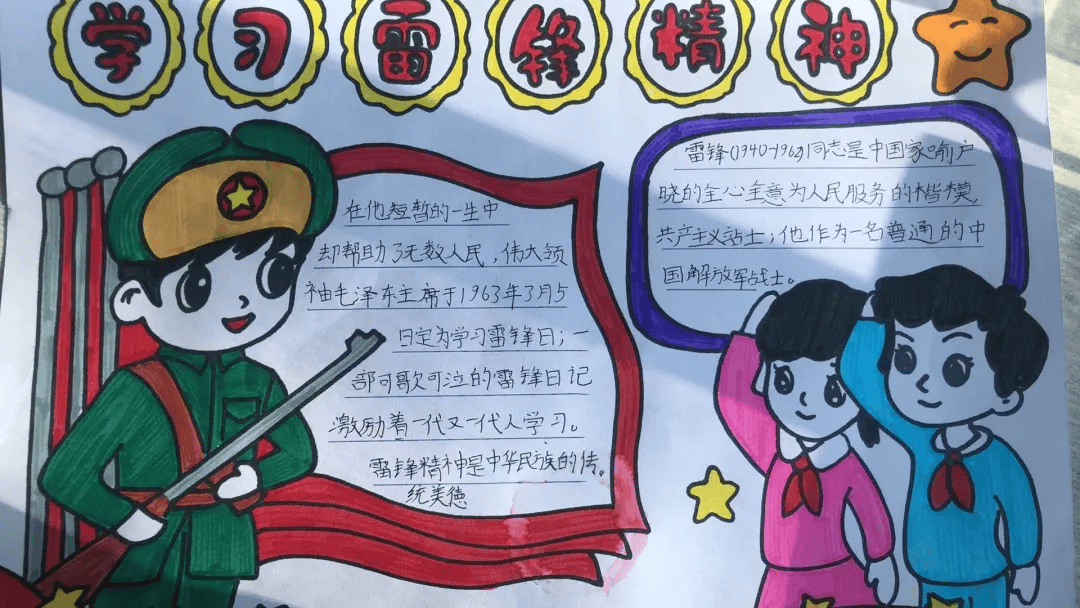 学习雷锋精神
在他短暂的一生中
却帮助了无数人民，伟大领
袖毛泽东主席于1963年3月5
日定为学习雷锋日；一
部可歌可泣的雷锋日记
激励着一代又一代人学习。
雷锋精神是中华民族的传。
统美德
雷锋(1940-1962)同志是中国家喻户
晓的全心全意为人民服务的楷模，
共产主义战士；他作为一名普通的中
国解放军战士。